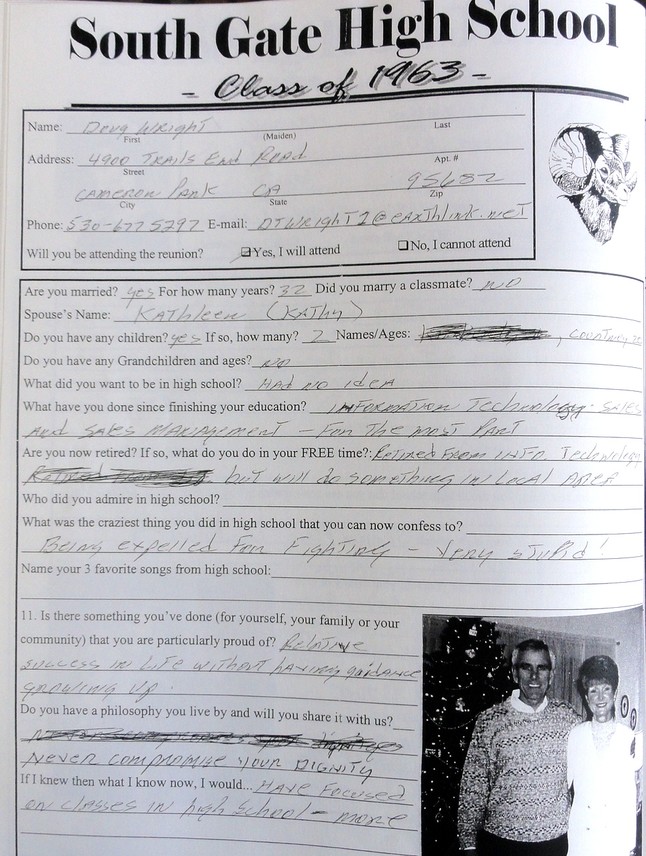 South Gate High School
- Class of 1963 -
Name: Doug Wright
First (Maiden) Last
Address: 4900 Trails End Road Apt. #
Street
Cameron Park CA 95682
City State Zip
Phone: 530-677 5297 E-mail: DTWRIGHT2@earthlink.net
Will you be attending the reunion? Yes, I will attend No, I cannot attend
Are you married? yes For how many years? 32 Did you marry a classmate? NO
Spouse's Name: Kathleen (Kathy)
Do you have any children? yes If so, how many? 2 Names/Ages:
Do you have any Grandchildren and ages? NO
What did you want to be in high school? Had no idea
What have you done since finishing your education? Information Technology - Sales
and Sales Management - For the most part
Are you now retired? If so, what do you do in your FREE time?: Retired from info. Technology
but will do something in local area
Who did you admire in high school?
What was the craziest thing you did in high school that you can now confess to?
Being expelled for Fighting - Very stupid!
Name your 3 favorite songs from high school:
11. Is there something you've done (for yourself, your family or your
community) that you are particularly proud of? Relative
success in life without having guidance
growing up.
Do you have a philosophy you live by and will you share it with us?
Never compromise your Dignity
If I knew then what I know now, I would... Have focused
on classes in high school - more